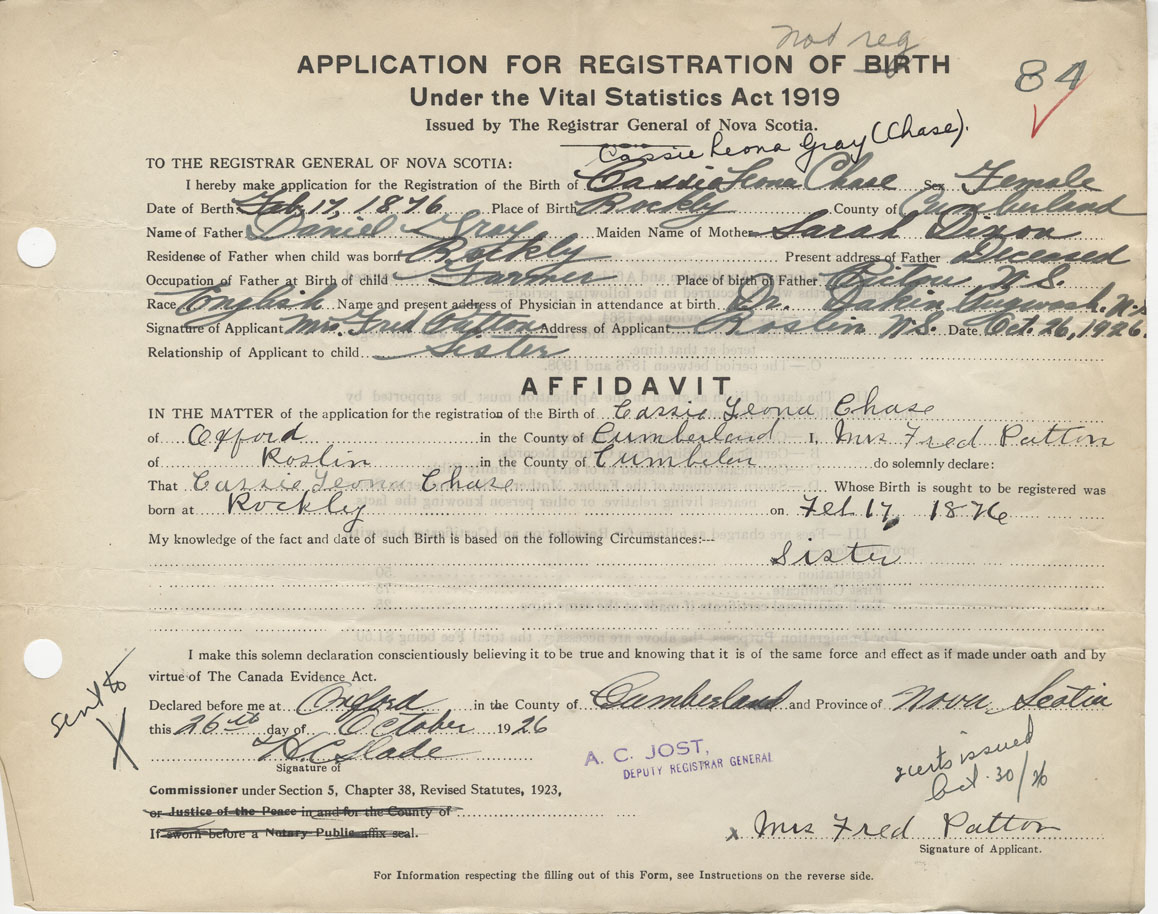 not reg
APPLICATION FOR REGISTRATION OF BIRTH
84
Under the Vital Statistics Act 1919
Issued by The Registrar General of Nova Scotia.
Cassie Leona Gray (Chase).
TO THE REGISTRAR GENERAL OF NOVA SCOTIA:
I hereby make application for the Registration of the Birth of Cassie Leona Chase Sex Female
Date of Berth Feb 17, 1876 Place of Birth Rockly County of Cumberland
Name of Father Daniel Gray Maiden Name of Mother Sarah Dixon
Residense of Father when child was born Rockly Present address of Father Deceased
Occupation of Father at Birth of child Farmer Place of birth of Father Pictou N.S.
Race English Name and present address of Physician in attendance at birth Dr. Dakin Pugwash, N.S
Signature of Applicant Mrs. Fred Patton Address of Applicant Roslin N.S. Date Oct. 26, 1926.
Relationship of Applicant to child Sister
AFFIDAVIT
IN THE MATTER of the application for the registration of the Birth of Cassie Leona Chase
of Oxford in the County of Cumberland I, Mrs Fred Patton
of Roslin in the County of Cumbelan do solemnly declare:
That Cassie Leona Chase Whose Birth is sought to be registered was
born at Rockly on Feb 17, 1876
My knowledge of the fact and date of such Birth is based on the following Circumstances:---
Sister
I make this solemn declaration conscientiously believing it to be true and knowing that it is of the same force and effect as if made under oath and by
virtue of The Canada Evidence Act.
sent to
X
Declared before me at Oxford in the County of Cumberland and Province of Nova Scotia
this 26th day of October 1926
H.C. Slade
Signature of
A. C. JOST,
DEPUTY REGISTRAR GENERAL
certs issued
Oct. 30/26
Commissioner under Section 5, Chapter 38, Revised Statutes, 1923,
or Justice of the Peace in and for the County of
If sworn before a Notary Public affix seal.
x Mrs Fred Patton
Signature of Applicant.
For Information respecting the filling out of this Form, see Instructions on the reverse side.